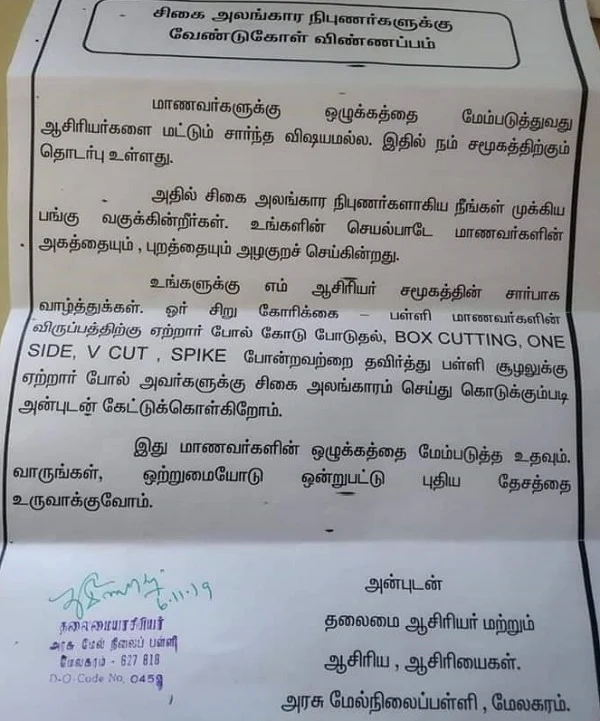 சிகை அலங்கார நிபுணர்களுக்கு
வேண்டுகோள் விண்ணப்பம்
மாணவர்களுக்கு ஒழுக்கத்தை மேம்படுத்துவது
ஆசிரியர்களை மட்டும் சார்ந்த விஷயமல்ல. இதில் நம் சமூகத்திற்கும்
தொடர்பு உள்ளது.
அதில் சிகை அலங்கார நிபுணர்களாகிய நீங்கள் முக்கிய
பங்கு வகுக்கின்றீர்கள். உங்களின் செயல்பாடே மாணவர்களின்
அகத்தையும் , புறத்தையும் அழகுறச் செய்கின்றது.
உங்களுக்கு எம் ஆசிரியர் சமூகத்தின் சார்பாக
வாழ்த்துக்கள். ஓர் சிறு கோரிக்கை – பள்ளி மாணவர்களின்
விருப்பத்திற்கு ஏற்றார் போல் கோடு போடுதல், BOX CUTTING, ONE
SIDE, V CUT , SPIKE போன்றவற்றை தவிர்த்து பள்ளி சூழலுக்கு
ஏற்றார் போல் அவர்களுக்கு சிகை அலங்காரம் செய்து கொடுக்கும்படி
அன்புடன் கேட்டுக்கொள்கிறோம்.
இது மாணவர்களின் ஒழுக்கத்தை மேம்படுத்த உதவும்.
வாருங்கள், ஒற்றுமையோடு ஒன்றுபட்டு புதிய தேசத்தை
உருவாக்குவோம்.
6.11.19
தலைமையாசிரியர்
அரசு மேல் நிலைப் பள்ளி
மேலகரம் - 627 818
D-O-Code No, 045
அன்புடன்
தலைமை ஆசிரியர் மற்றும்
ஆசிரிய , ஆசிரியைகள்.
அரசு மேல்நிலைப்பள்ளி , மேலகரம்.